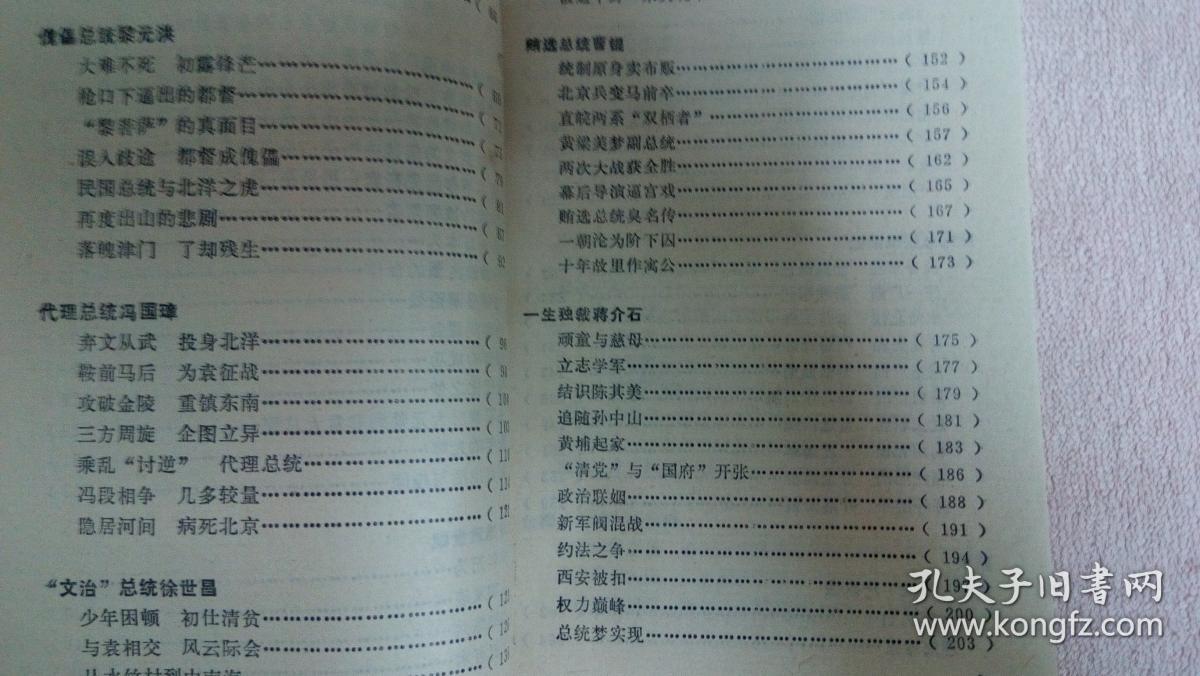 傀儡总统黎元洪
大难不死 初露锋芒
枪口下逼出的都督
“黎菩萨”的真面目
误入歧途 都督成傀儡
民国总统与北洋之虎
再度出山的悲剧
落魄津门 了却残生
代理总统冯国璋
弃文从武 投身北洋
鞍前马后 为袁征战
攻破金陵 重镇东南
三方周旋 企图立异
乘乱“讨逆” 代理总统
冯段相争 几多较量
隐居河间 病死北京
“文治”总统徐世昌
少年困顿 初仕清贫
与袁相交 风云际会
贿选总统曹锟
统制原身卖布贩……(152)
北京兵变马前卒……(154)
直皖两系“双栖者”……(156)
黄粱美梦副总统……(157)
两次大战获全胜……(162)
幕后导演逼宫戏……(165)
贿选总统臭名传……(167)
一朝沦为阶下囚……(171)
十年故里作寓公……(173)
一生独裁蒋介石
顽童与慈母……(175)
立志学军……(177)
结识陈其美……(179)
追随孙中山……(181)
黄埔起家……(183)
“清党”与“国府”开张……(186)
政治联姻……(188)
新军阀混战……(191)
约法之争……(194)
西安被扣
权力巅峰……(200)
总统梦实现……(203)
孔夫子旧书网
www.kongfz.com